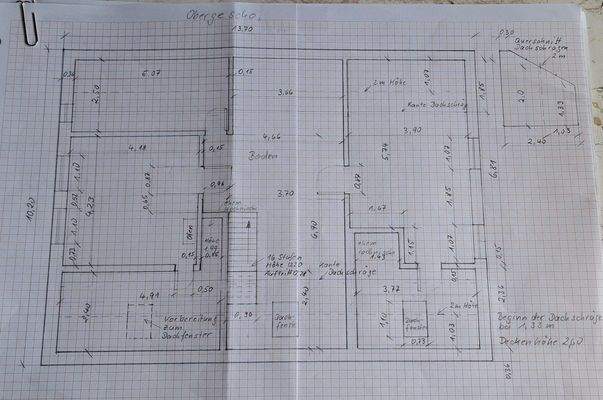 Obergescho.
13,70
0,30
Querschnitt
Dachschräge
2m
6,07
0,15
3,66
2m Höhe
1,07
1,85
2,0
1,33
0,36
2,50
Kante Dachschräg
1,03
2,46
4,18
0,15
4,66
3,90
Boden
5,74
1,07
6,81
1,10
0,87
0,96
3,70
0,87
1,85
10,20
4,23
0,65
1,47
1,10
Ofen
6,90
1,15
1,07
0,73
0,15
16 Stufen
Höhe 0,20
Auftritt 0,28
Kante
Dachschräge
1,43
0,15
4,91
0,50
3,72
2m Höhe
2,36
2,40
Vorbereitung
zum
Dachfenster
0,90
Dach
fenster
2,90
1,10
Dach
fenster
1,03
0,73
Beginn der Dachschräge
bei 1,33 m
Deckenhöhe 2,60
0,36